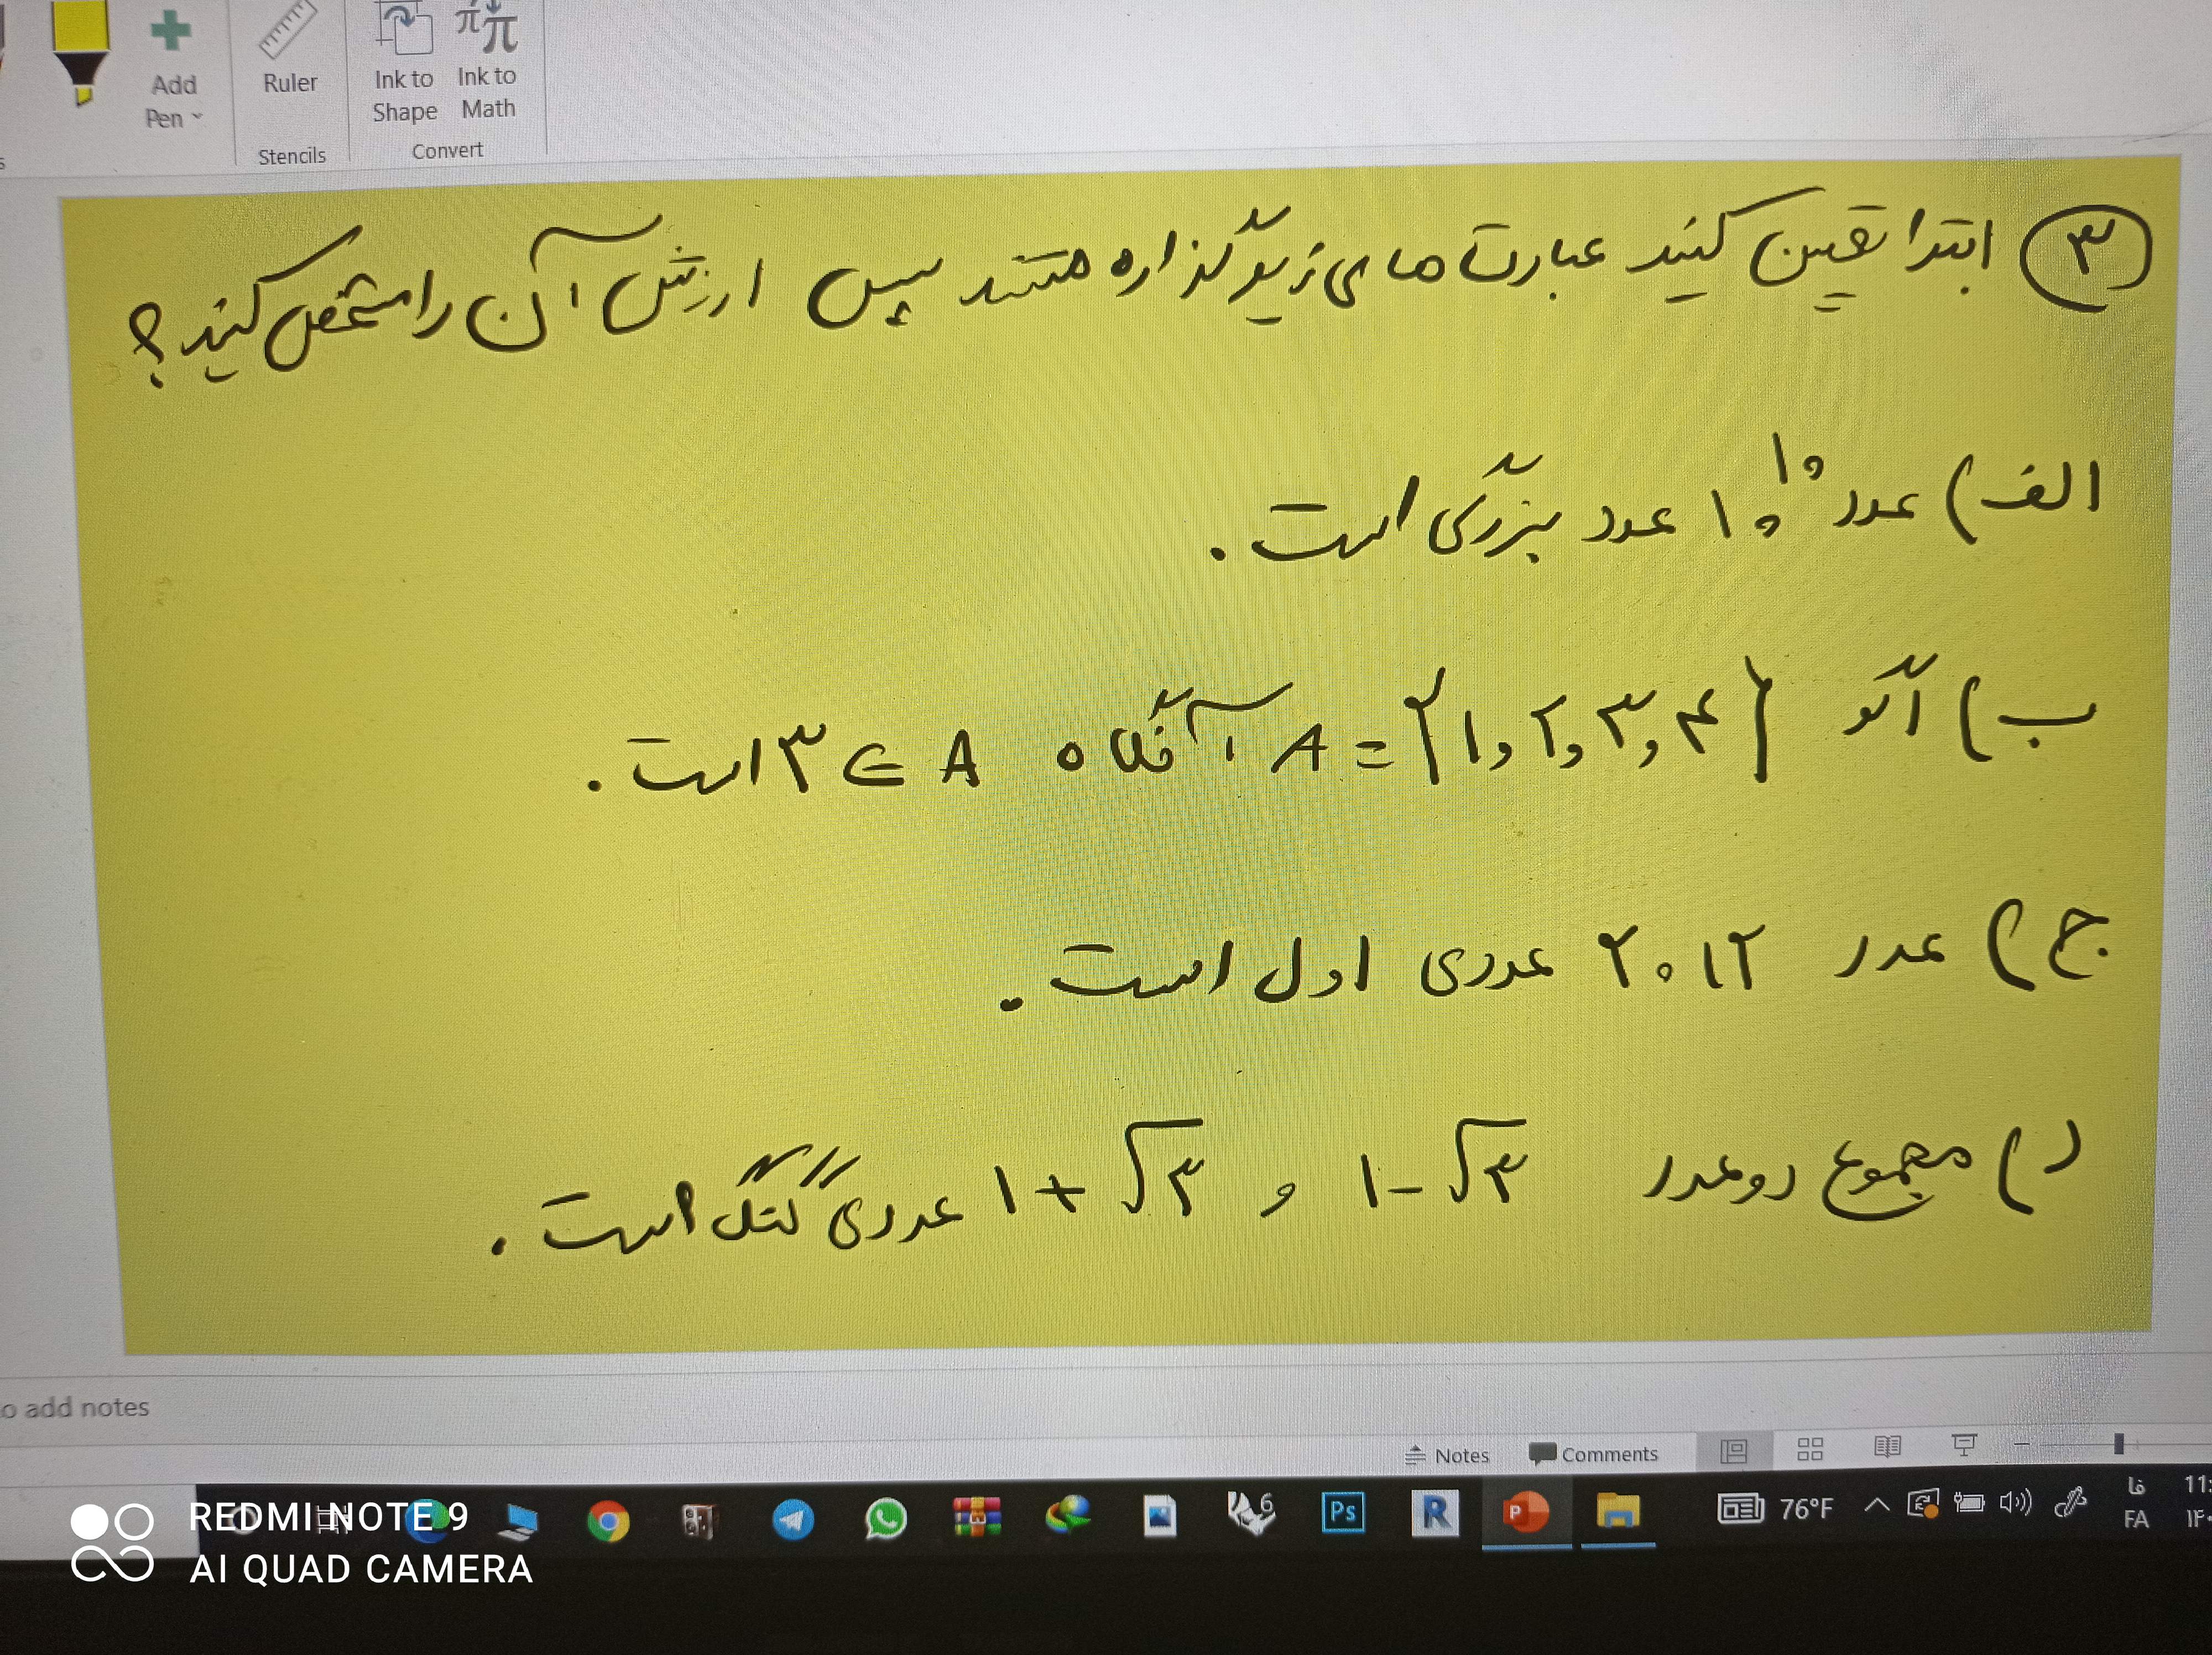 Add Pen
Ruler
Ink to Shape
Ink to Math
Stencils
Convert
۳ ابتدا تعیین کنید عبارت های زیر گزاره هستند سپس ارزش آن را مشخص کنید؟
الف) عدد ۱۰^۱۰ عدد بزرگی است.
ب) اگر A = {۱,۲,۳,۴} آنگاه ۳ ∈ A است.
ج) عدد ۲۰۱۲ عددی اول است.
د) مجموع دو عدد ۱-√۳ و ۱+√۳ عددی گنگ است.
o add notes
Notes
Comments
76°F
فا
FA
11:
REDMI NOTE 9
AI QUAD CAMERA